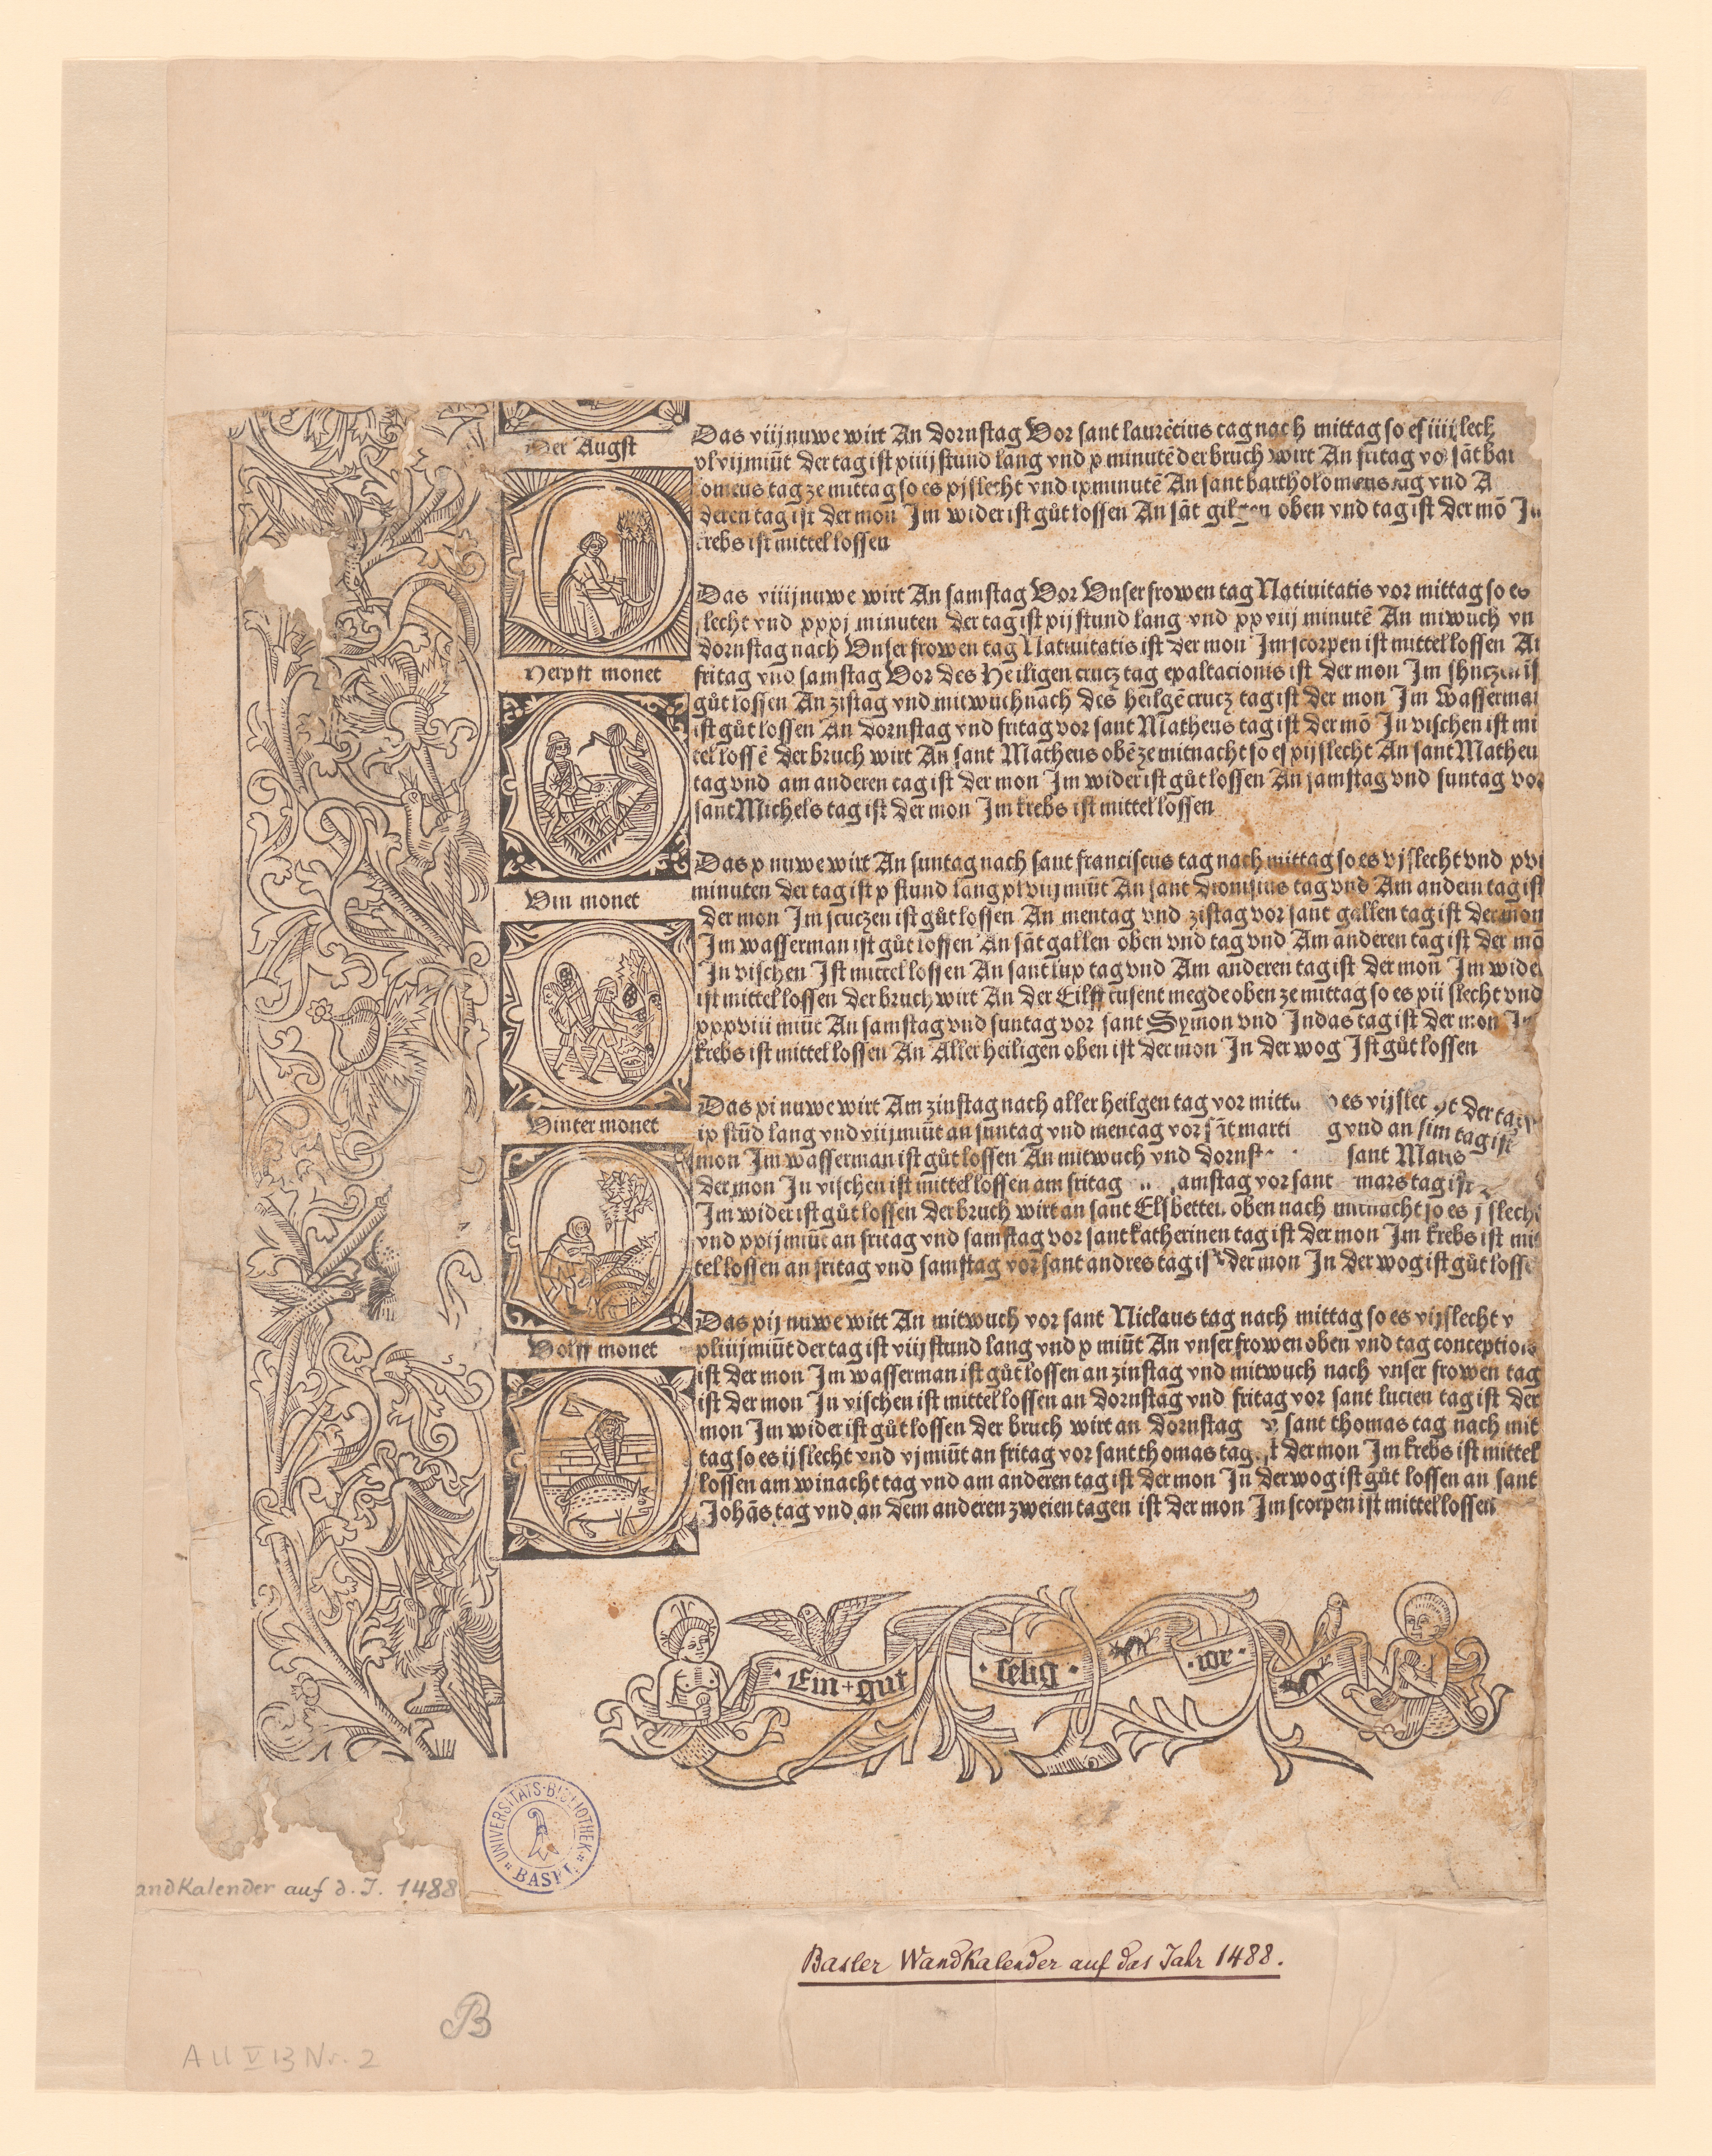 Der Augst
Das viij nuwe wirt An dornstag Vor sant laurẽcius tag nach mittag so es iiij slech
xlvij miñt der tag ist xiiij stund lang vnd x minutẽ der bruch wirt An fritag vo sãt bar
omeus tag ze mittag so es xj slecht vnd ix minutẽ An sant bartholomeus tag vnd A
deren tag ist der mon Im wider ist gůt lossen An sãt gilgen oben vnd tag ist der mõ Im
krebs ist mittel lossen
Herpst monet
Das viiij nuwe wirt An samstag Vor Vnser frowen tag Natiuitatis vor mittag so es
slecht vnd xxxj minuten der tag ist xij stund lang vnd xxviij minutẽ An miwuch vn
dornstag nach Vnser frowen tag Natiuitatis ist der mon Im scorpen ist mittel lossen An
fritag vnd samstag Vor des Heiligen crucz tag exaltacionis ist der mon Im shuczen is
gůt lossen An zistag vnd mitwuch nach des heilgẽ crucz tag ist der mon Im Wasserman
ist gůt lossen An dornstag vnd fritag vor sant Matheus tag ist der mõ In vischen ist mi
tel lossẽ der bruch wirt An sant Matheus obẽ ze mitnacht so es xij slecht An sant Matheu
tag vnd am anderen tag ist der mon Im wider ist gůt lossen An samstag vnd suntag vor
sant Michels tag ist der mon Im krebs ist mittel lossen
Vin monet
Das x nuwe wirt An suntag nach sant franciscus tag nach mittag so es vj slecht vnd xvi
minuten der tag ist x stund lang xlviij miñt An sant dionisius tag vnd Am andern tag ist
der mon Im scuczen ist gůt lossen An mentag vnd zistag vor sant gallen tag ist der mon
Im wasserman ist gůt lossen An sãt gallen oben vnd tag vnd Am anderen tag ist der mõ
In vischen Ist mittel lossen An sant lux tag vnd Am anderen tag ist der mon Im wide
ist mittel lossen der bruch wirt An der Eilff tusent megde oben ze mittag so es xii slecht vnd
xxxviii miñt An samstag vnd suntag vor sant Symon vnd Indas tag ist der mon Im
krebs ist mittel lossen An Aller heiligen oben ist der mon In der wog Ist gůt lossen
Winter monet
Das xi nuwe wirt Am zinstag nach aller heilgen tag vor mitta o es vij slec ht der tag
ix stũd lang vnd viij miñt an suntag vnd mentag vor sãt marti g vnd an sim tag ist
mon Im wasserman ist gůt lossen An mitwuch vnd dornst sant
der mon In vischen ist mittel lossen am fritag amstag vor sant mars tag ist
Im wider ist gůt lossen der bruch wirt an sant Elsbetten oben nach mitnacht so es j slecht
vnd xxij miñt an fritag vnd samstag vor sant katherinen tag ist der mon Im krebs ist mit
tel lossen an fritag vnd samstag vor sant andres tag ist der mon In der wog ist gůt losse
Wolff monet
Das xij nuwe wirt An mitwuch vor sant Niclaus tag nach mittag so es vij slecht v
xliiij miñt der tag ist viij stund lang vnd x miñt An vnser frowen oben vnd tag conceptions
ist der mon Im wasserman ist gůt lossen an zinstag vnd mitwuch nach vnser frowen tag
ist der mon In vischen ist mittel lossen an dornstag vnd fritag vor sant lucien tag ist der
mon Im wider ist gůt lossen der bruch wirt an dornstag v sant thomas tag nach mit
tag so es ij slecht vnd vj miñt an fritag vor sant thomas tag t der mon Im krebs ist mittel
lossen am winacht tag vnd am anderen tag ist der mon In der wog ist gůt lossen an sant
Johãs tag vnd an dem anderen zweien tagen ist der mon Im scorpen ist mittel lossen
Ein + gut · selig · ior ·
UNIVERSITÄTS-BIBLIOTHEK BASEL
andKalender auf d. J. 1488
Basler Wandkalender auf das Jahr 1488.
B
A U V 13 Nr. 2